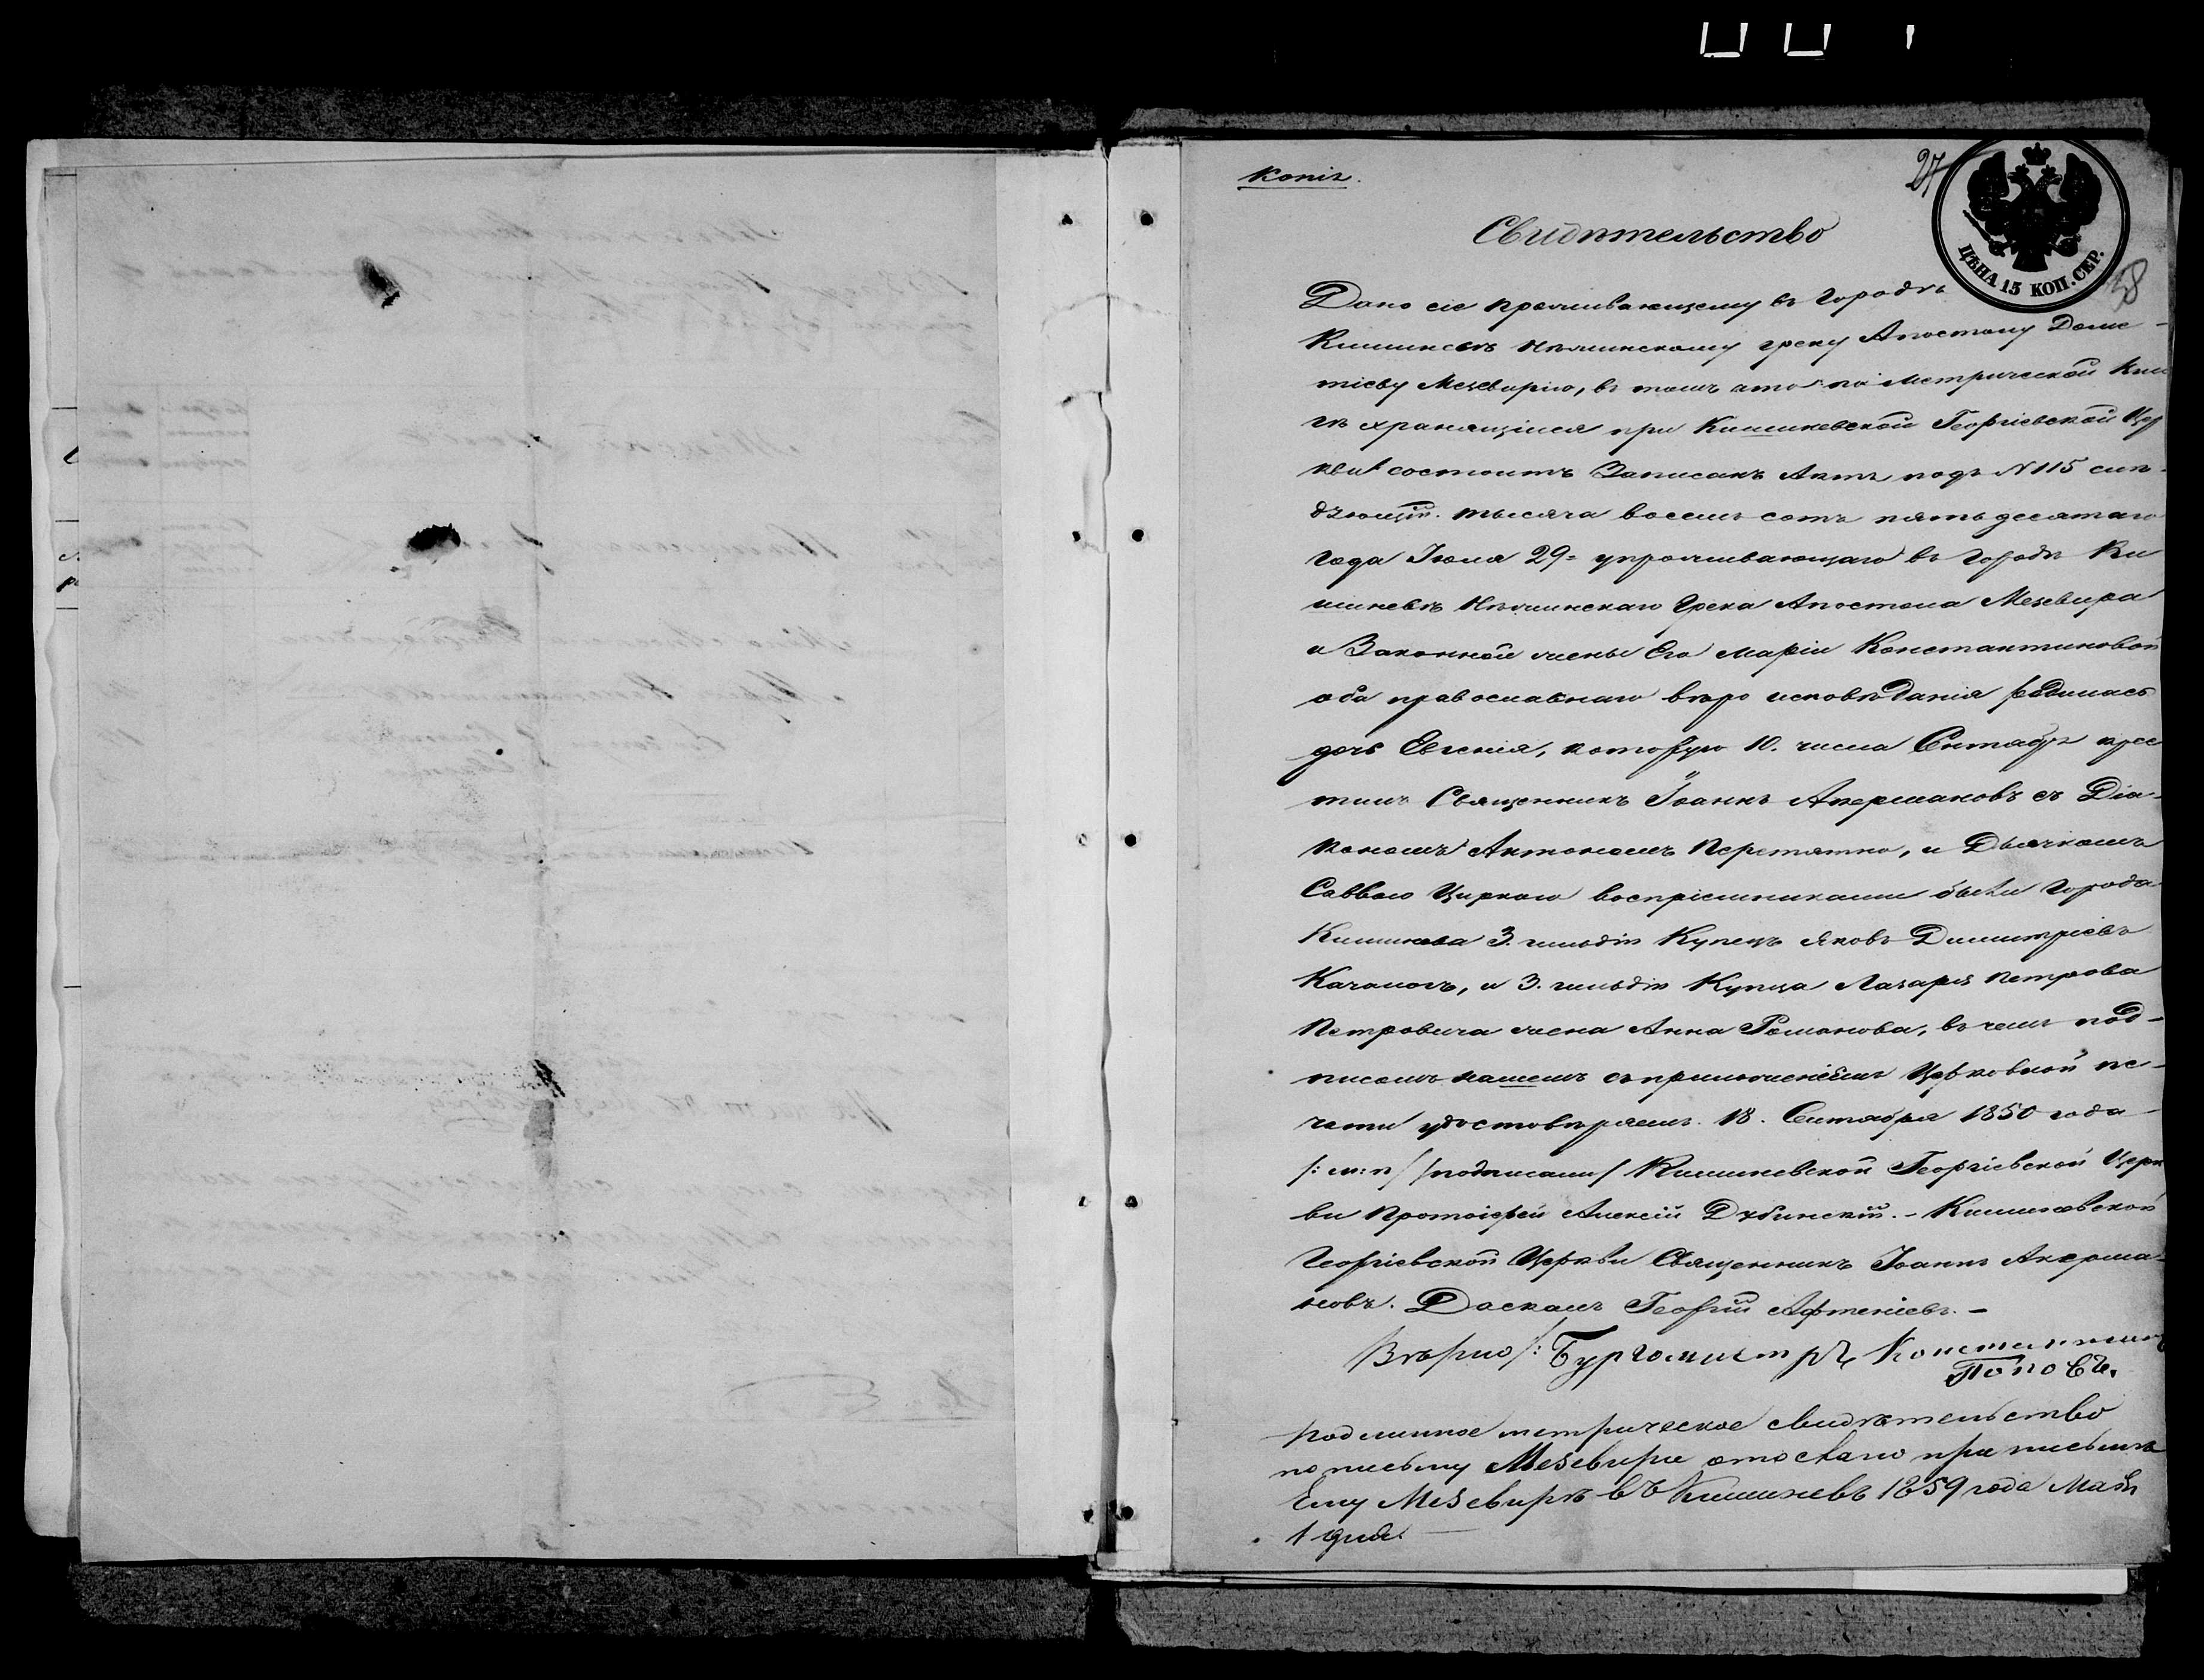 Копія.
27
Свидѣтельство
ЦѢНА 15 КОП. СЕР.
58
Дано сіе проживающему въ городѣ
Кишиневѣ Нѣжинскому греку Апостолу Доме-
тіеву Мезевирію, въ томъ что по метрической кни
гѣ хранящійся при Кишиневской Георгіевской Цер
кви состоитъ Записанъ Актъ подъ N 115 слѣ-
дующій. тысяча восемь сотъ пятьдесятаго
года Іюля 29= упроживающаго въ городѣ Ки
шиневѣ Нѣжинскаго Грека Апостола Мезевира
и Законной жены Его Маріи Константиновой
оба православнаго вѣро исповѣданія родилась
дочь Евгенія, которую 10. числа Сентабря крес
тилъ Священникъ Іоаннъ Акермановъ съ Діа-
кономъ Антономъ Перетятко, и Дьячкомъ
Саввою Циркою воспріемниками были Города
Кишинева 3. гильдіи Купецъ Яковъ Димитріевъ
и 3. гильдіи Купца Лазаря Петрова
Петровича жена Анна Романова, въ чемъ под-
писомъ нашемъ съ приложеніемъ Церковной пе-
чати удостовѣряемъ. 18. Сентября 1850 года
/: м: п/ /подписали/ Кишиневской Георгіевской Церк
ви Протоіерей Алексій Дубинскій. - Кишиневской
Георгіевской Церкви Священникъ Іоаннъ Акерма-
новъ. Даскалъ Георгій Афтеніевъ. -
Вѣрно/: Бургомистръ Константинъ
Поповъ.
подлинное метрическое свидѣтельство
по письму Мезевири отослано при письмѣ
Ему Мезевирѣ въ Кишиневъ 1859 года Маія
1 дня.